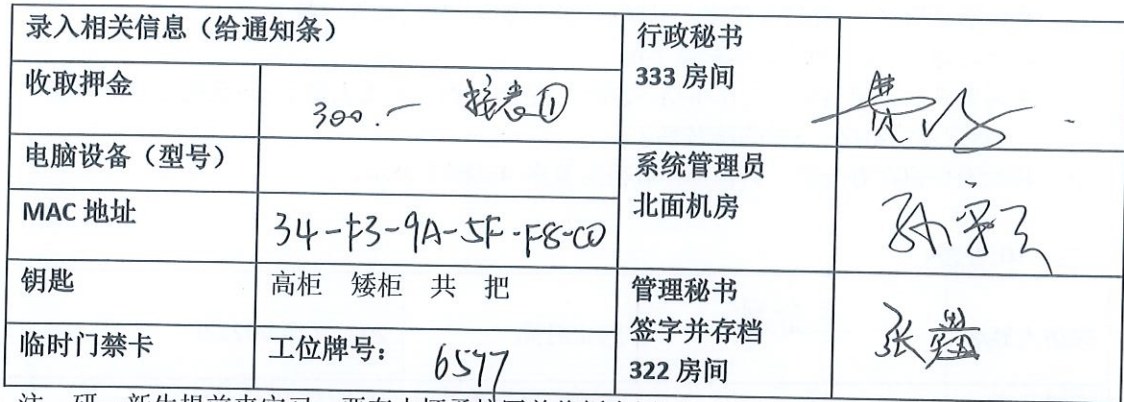 录入相关信息（给通知条）
行政秘书
333 房间
收取押金
300.-
电脑设备（型号）
系统管理员
北面机房
MAC 地址
34-F3-9A-5F-F8-C0
钥匙
高柜 矮柜 共 把
管理秘书
签字并存档
322 房间
张
临时门禁卡
工位牌号：
6577